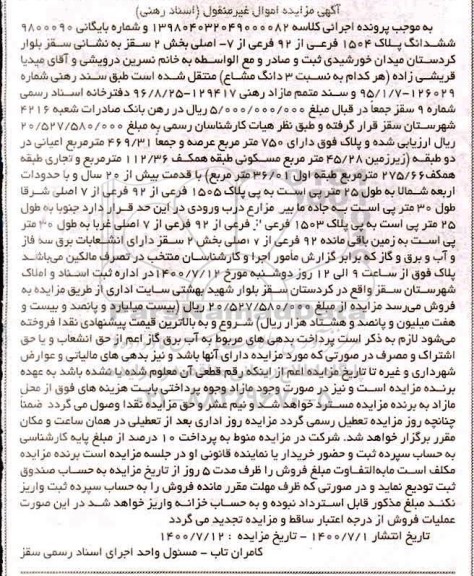 آگهی مزایده اموال غیرمنقول (اسناد رهنی)
به موجب پرونده اجرائی کلاسه ۱۳۹۸۰۴۰۳۲۰۴۹۰۰۰۰۸۲ و شماره بایگانی ۹۸۰۰۰۹۰
ششدانگ پلاک ۱۵۰۴ فرعی از ۹۲ فرعی از ۷- اصلی بخش ۲ سقز به نشانی سقز بلوار
کردستان میدان خورشیدی ثبت و صادر و مع الواسطه به خانم نسرین درویشی و آقای میدیا
قریشی زاده (هر کدام به نسبت ۳ دانگ مشاع) منتقل شده است طبق سند رهنی شماره
۱۲۶۰۲۹-۹۵/۱/۷ و سند متمم مازاد رهنی ۱۲۹۴۱۷-۹۶/۸/۲۵ دفترخانه اسناد رسمی
شماره ۹ سقز جمعاً در قبال مبلغ ۵/۰۰۰/۰۰۰/۰۰۰ ریال در رهن بانک صادرات شعبه ۴۲۱۶
شهرستان سقز قرار گرفته و طبق نظر هیات کارشناسان رسمی به مبلغ ۲۰/۵۲۷/۵۸۰/۰۰۰
ریال ارزیابی شده و پلاک فوق دارای ۷۵۰ متر مربع عرصه و جمعا ۴۶۹/۳۱ مترمربع اعیانی در
دو طبقه (زیرزمین ۴۵/۲۸ متر مربع مسکونی طبقه همکف ۱۱۲/۳۶ مترمربع و تجاری طبقه
همکف ۲۷۵/۶۶ مترمربع طبقه اول ۳۶/۰۱ متر مربع) با قدمت بیش از ۲۰ سال و با حدودات
اربعه شمالا به طول ۲۵ متر پی است به پی پلاک ۱۵۰۵ فرعی از ۹۲ فرعی از ۷ اصلی شرقا
طول ۳۰ متر پی است به جاده ما بین مزارع درب ورودی در این حد قرار دارد جنوبا به طول
۲۵ متر پی است به پی پلاک ۱۵۰۳ فرعی از ۹۲ فرعی از ۷ اصلی غربا به طول ۳۰ متر
پی است به زمین باقی مانده ۹۲ فرعی از ۷ اصلی بخش ۲ سقز دارای انشعابات برق سه فاز
و آب و برق و گاز که برابر گزارش مأمور اجرا و کارشناسان منتخب در تصرف مالکین می‌باشد
پلاک فوق از ساعت ۹ الی ۱۲ روز دوشنبه مورخ ۱۴۰۰/۷/۱۲ در اداره ثبت اسناد و املاک
شهرستان سقز واقع در کردستان سقز بلوار شهید بهشتی سایت اداری از طریق مزایده به
فروش می‌رسد مزایده از مبلغ ۲۰/۵۲۷/۵۸۰/۰۰۰ ریال بیست میلیارد و پانصد و بیست و
هفت میلیون و پانصد و هشتاد هزار ریال) شروع و به بالاترین قیمت پیشنهادی نقدا فروخته
می‌شود لازم به ذکر است پرداخت بدهی های مربوط به آب برق گاز اعم از حق انشعاب و یا حق
اشتراک و مصرف در صورتی که مورد مزایده دارای آنها باشد و نیز بدهی های مالیاتی و عوارض
شهرداری و غیره تا تاریخ مزایده اعم از اینکه رقم قطعی آن معلوم شده یا نشده باشد به عهده
برنده مزایده است و نیز در صورت وجود مازاد وجوه پرداختی بابت هزینه های فوق از محل
مازاد به برنده مزایده مسترد خواهد شد و نیم عشر و حق مزایده نقدا وصول می گردد ضمناً
چنانچه روز مزایده تعطیل رسمی گردد مزایده روز اداری بعد از تعطیلی در همان ساعت و مکان
مقرر برگزار خواهد شد. شرکت در مزایده منوط به پرداخت ۱۰ درصد از مبلغ پایه کارشناسی
به حساب سپرده ثبت و حضور خریدار یا نماینده قانونی او در جلسه مزایده است برنده مزایده
مکلف است مابه‌التفاوت مبلغ فروش را ظرف مدت ۵ روز از تاریخ مزایده به حساب صندوق
ثبت تودیع نماید و در صورتی که ظرف مهلت مقرر مانده فروش را به حساب سپرده ثبت واریز
نکند مبلغ مذکور قابل استرداد نبوده و به حساب خزانه واریز خواهد شد در این صورت
عملیات فروش از درجه اعتبار ساقط و مزایده تجدید می گردد
تاریخ انتشار ۱۴۰۰/۷/۱ - تاریخ مزایده : ۱۴۰۰/۷/۱۲
کامران تاب - مسئول واحد اجرای اسناد رسمی سقز